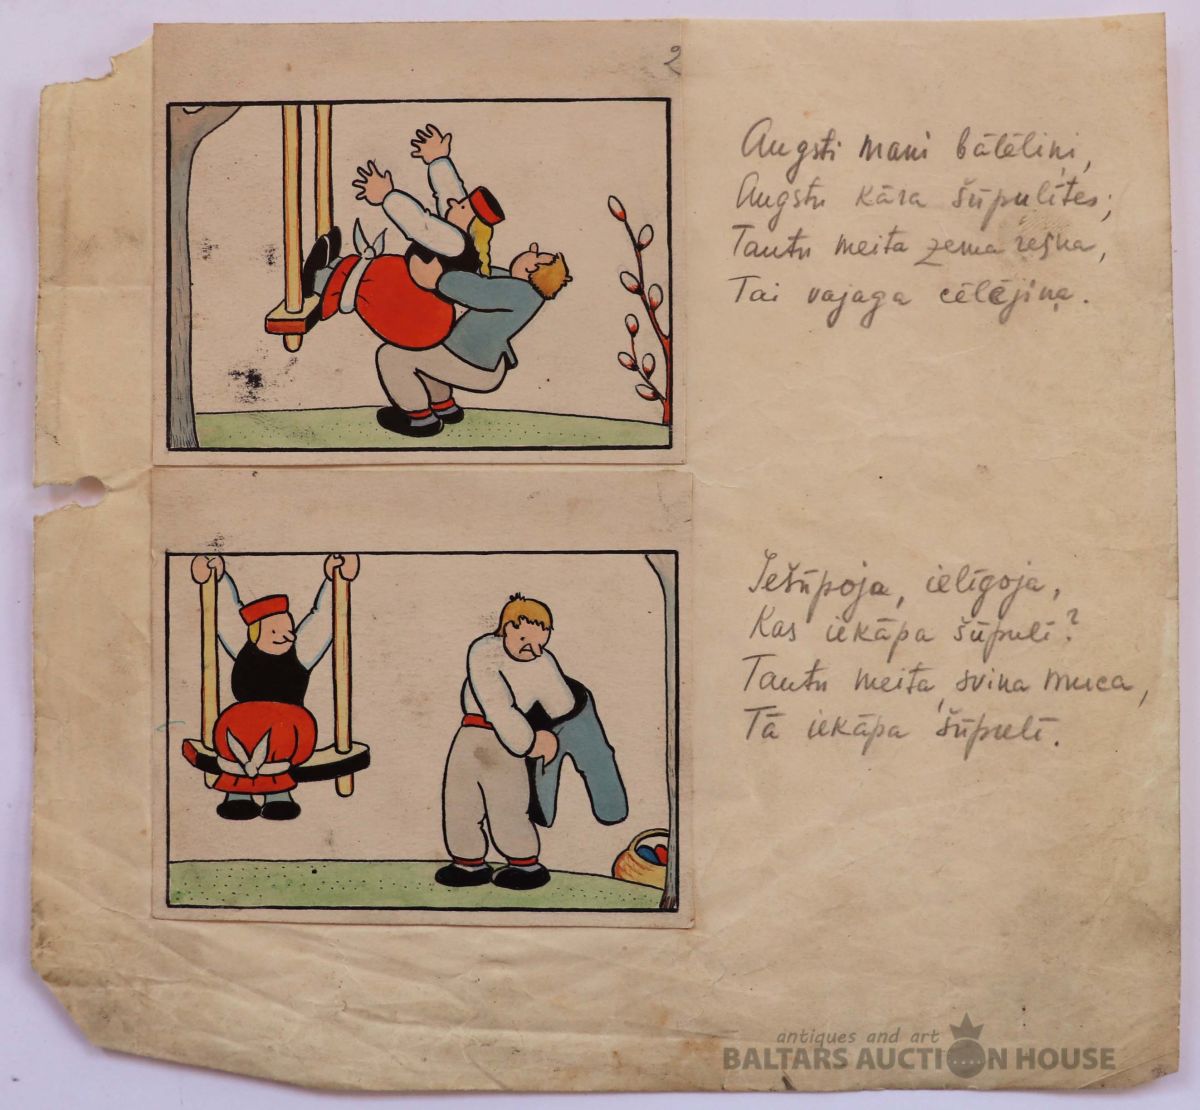 2
Augsti mani bātēliņi,
Augstu kāra šūpulītes;
Tautu meita zema resna,
Tai vajaga cēlējiņa.
Iešūpoja, ielīgoja,
Kas iekāpa šūpulī?
Tautu meita, svina muca,
Tā iekāpa šūpulī.
antiques and art
BALTARS AUCTION HOUSE